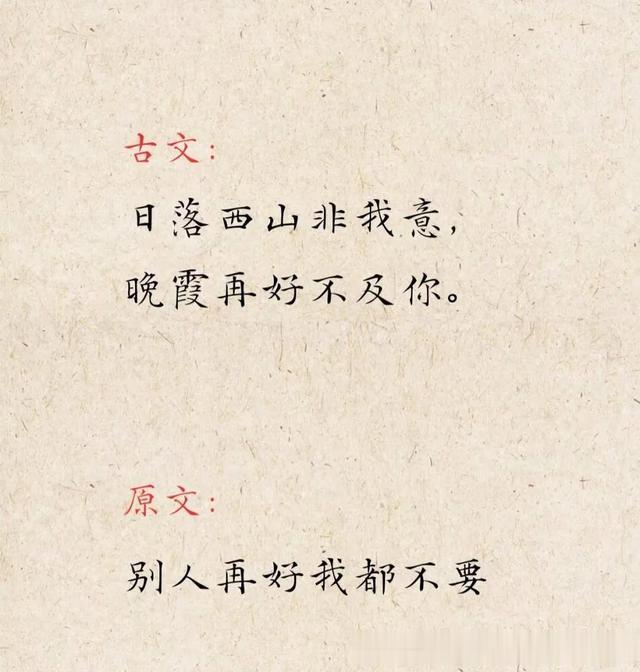 古文：
日落西山非我意，
晚霞再好不及你。
原文：
别人再好我都不要